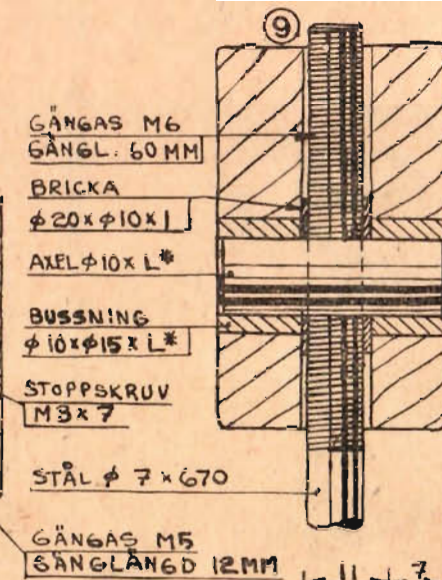 9
GÄNGAS M6
GÄNGL. 60 MM
BRICKA
φ20×φ10×1
AXEL φ10× L*
BUSSNING
φ10×φ15× L*
STOPPSKRUV
M3×7
STÅL φ 7×670
GÄNGAS M5
SÄNGLÄNGD 12MM
7